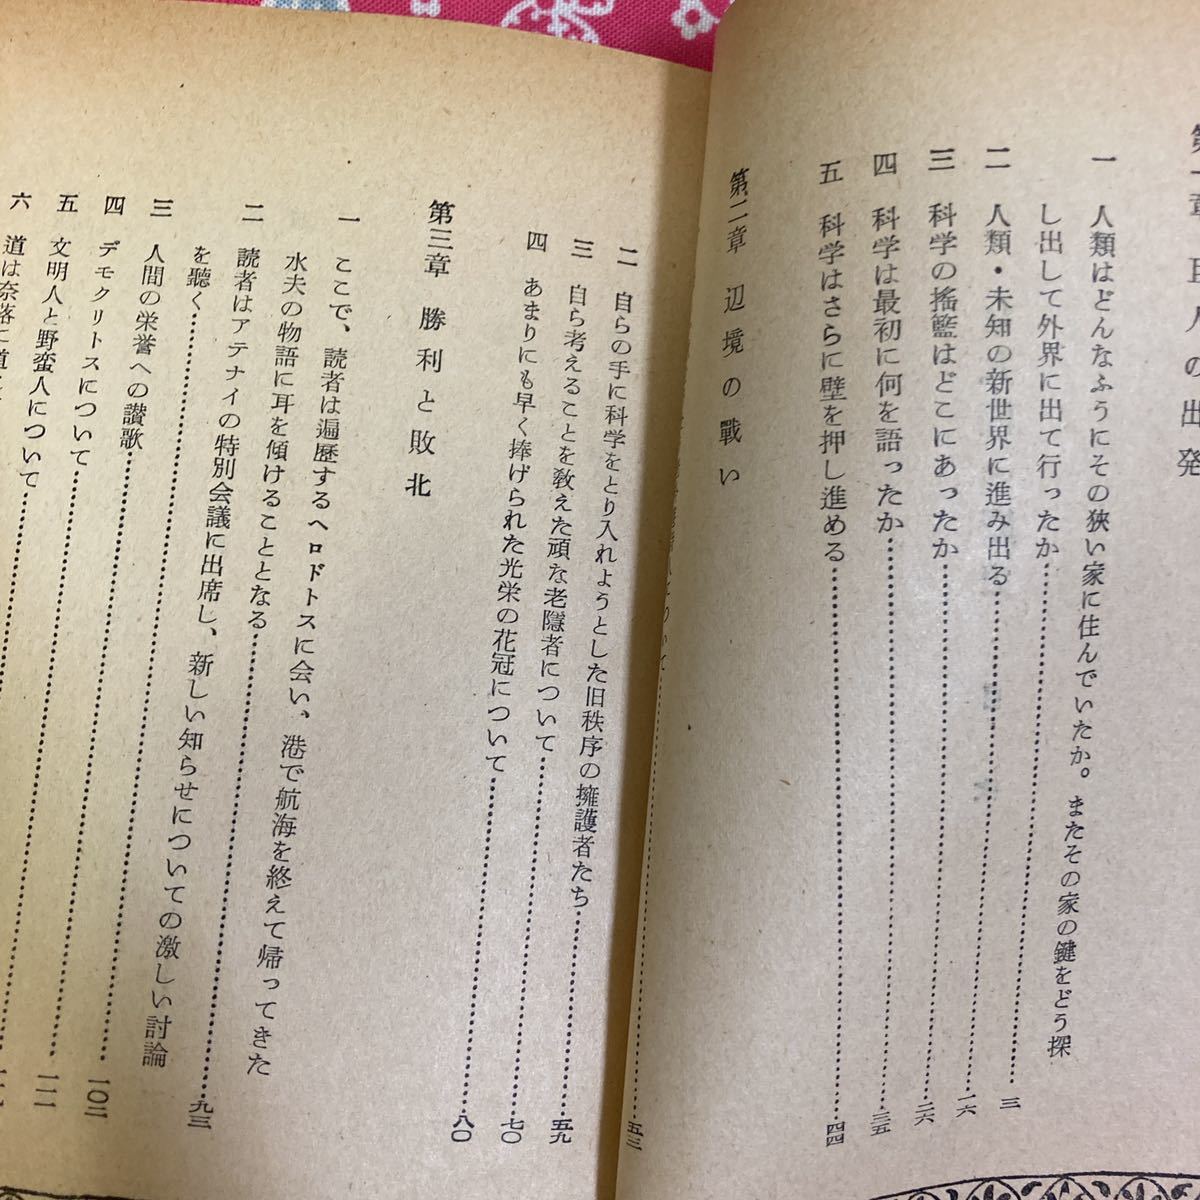 章 巨人の出発
一 人類はどんなふうにその狭い家に住んでいたか。またその家の鍵をどう探
し出して外界に出て行ったか……三
二 人類・未知の新世界に進み出る……一六
三 科学の搖籃はどこにあったか……二六
四 科学は最初に何を語ったか……三五
五 科学はさらに壁を押し進める……四四
第二章 辺境の戰い
について……五三
二 自らの手に科学をとり入れようとした旧秩序の擁護者たち……五九
三 自ら考えることを教えた頑な老隠者について……七〇
四 あまりにも早く捧げられた光栄の花冠について……八〇
第三章 勝利と敗北
一 ここで、読者は遍歴するヘロドトスに会い、港で航海を終えて帰ってきた
水夫の物語に耳を傾けることとなる……九三
二 読者はアテナイの特別会議に出席し、新しい知らせについての激しい討論
を聴く……一〇二
三 人間の栄誉への讃歌……一一一
四 デモクリトスについて
五 文明人と野蛮人について
六 道は奈落に